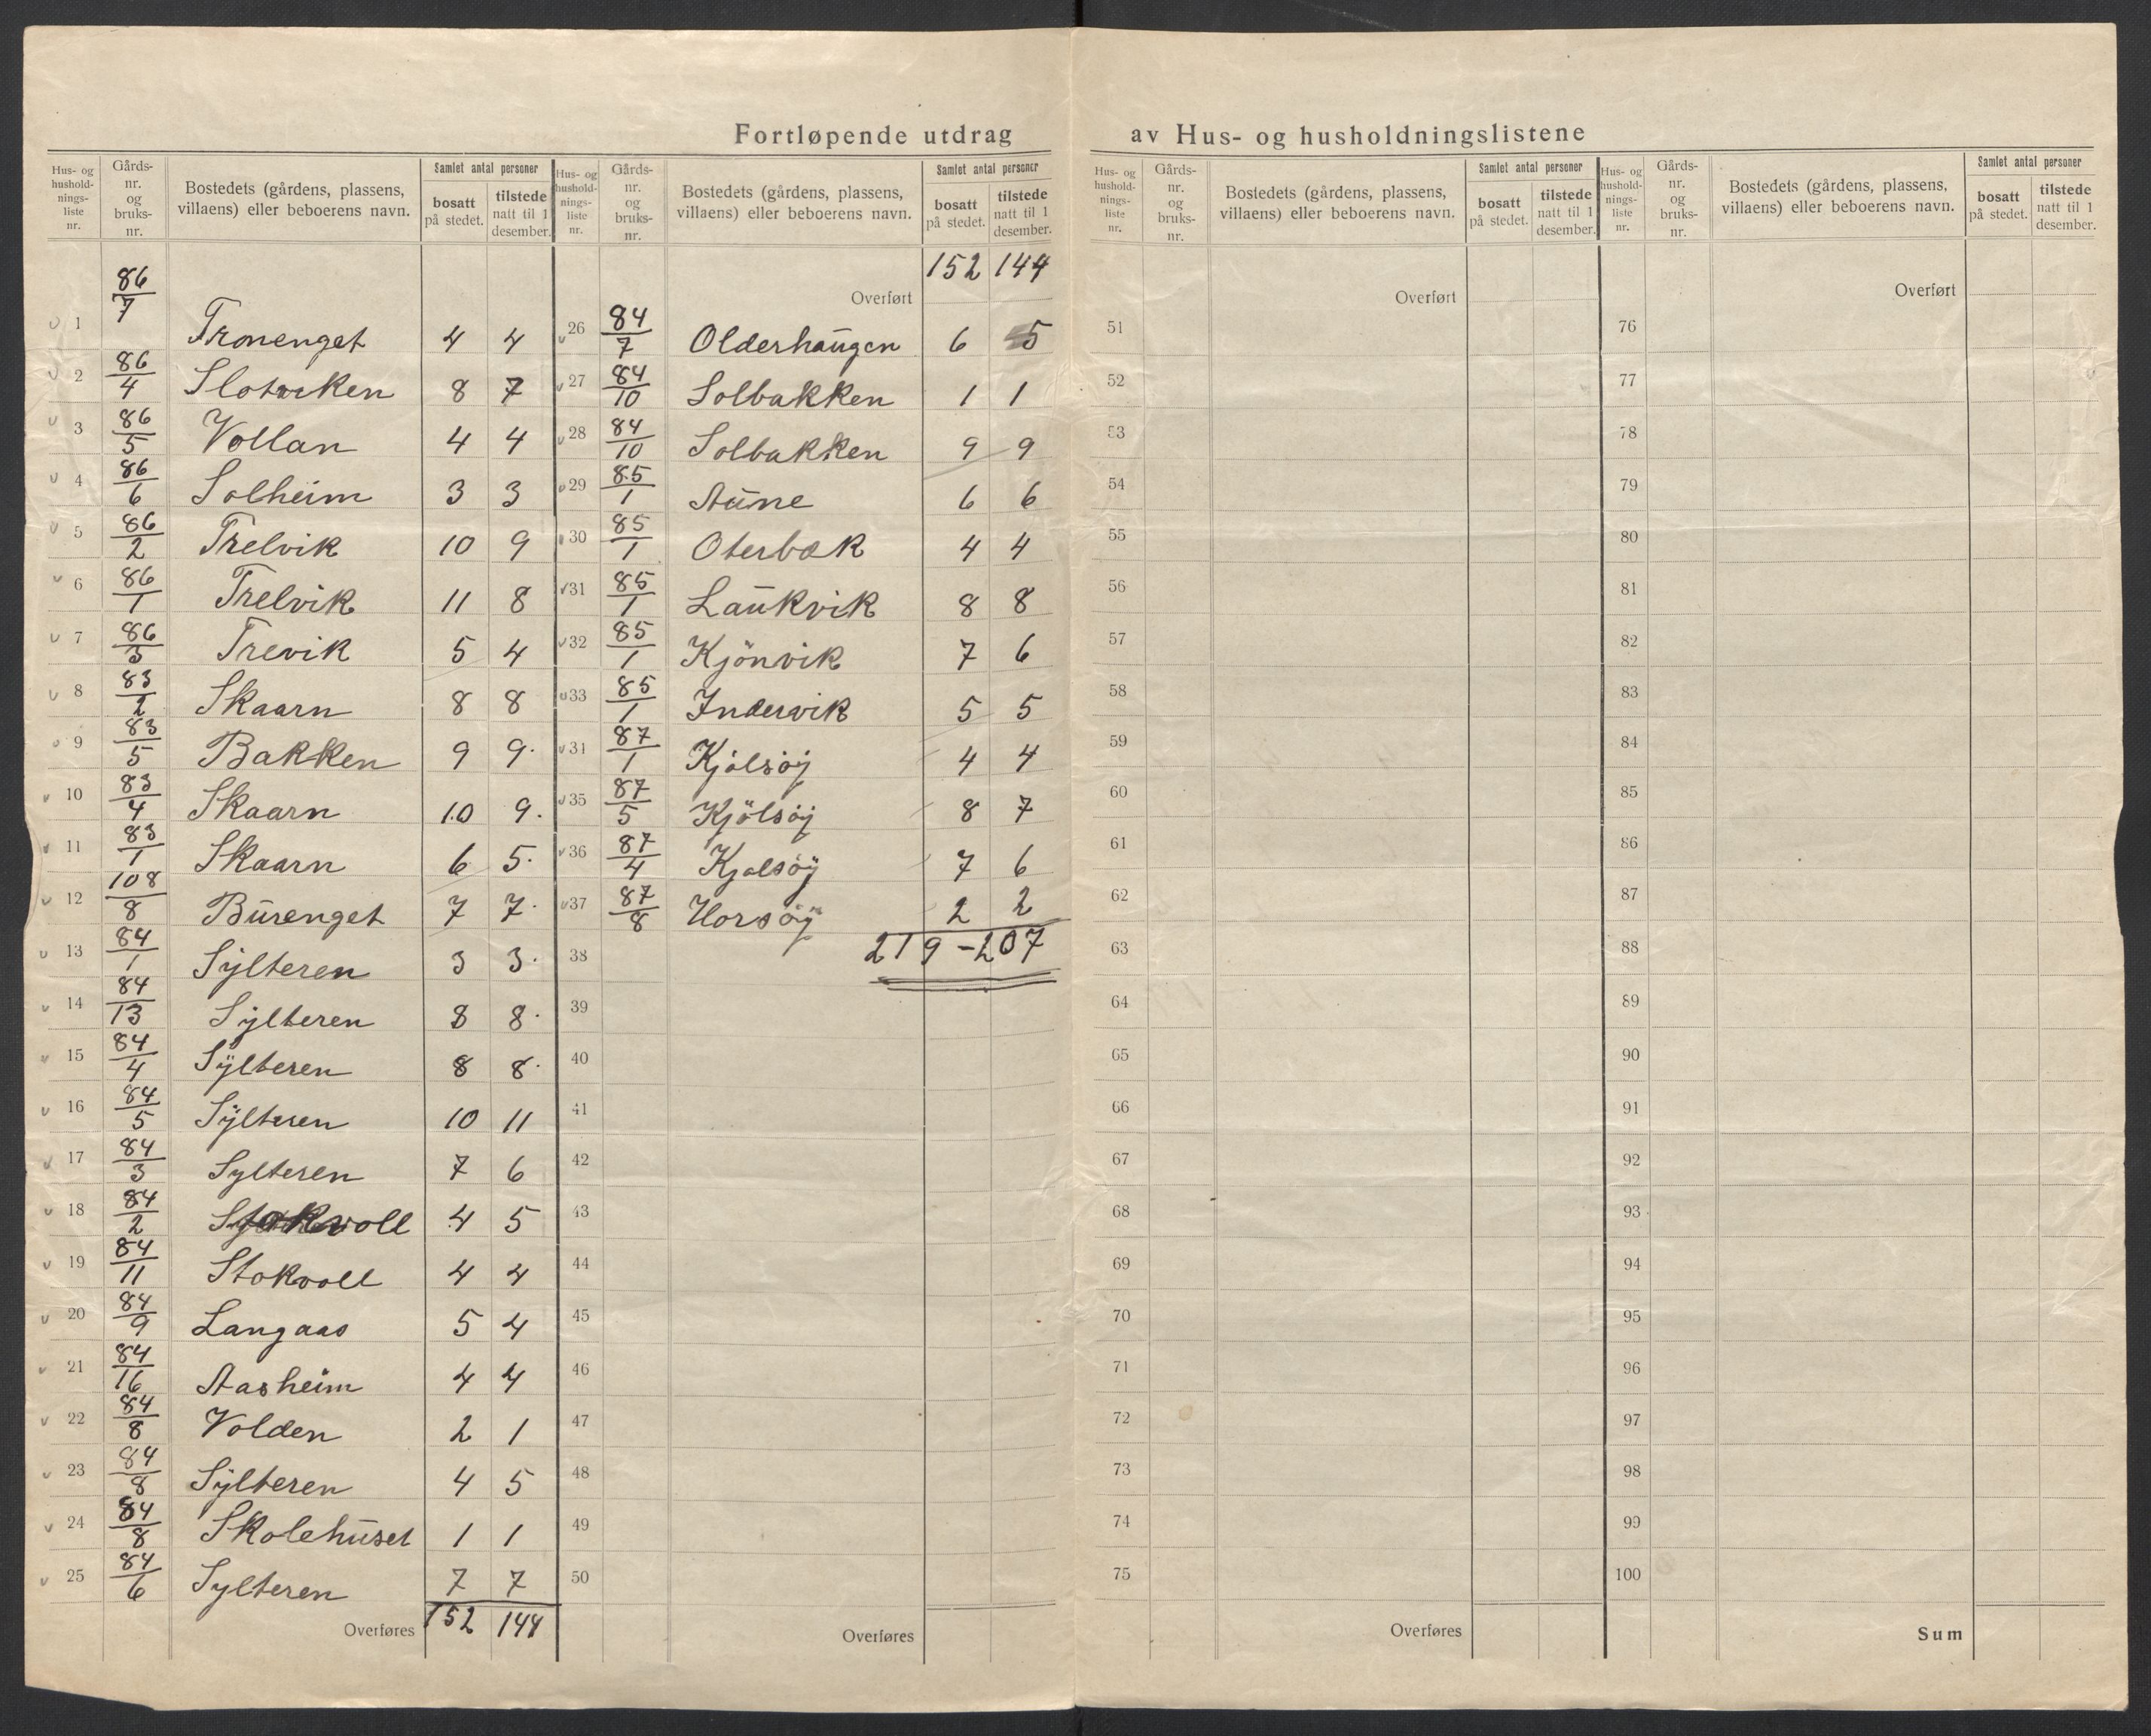 Fortløpende utdrag av Hus- og husholdningslistene
Hus- og hushold-nings-liste nr. | Gårds-nr. og bruks-nr. | Bostedets (gårdens, plassens, villaens) eller beboerens navn. | Samlet antal personer | bosatt på stedet. | tilstede natt til 1 desember.
1 86/7 Tronenget 4 4
2 86/4 Slotviken 8 7
3 86/5 Vollan 4 4
4 86/6 Solheim 3 3
5 86/2 Trelvik 10 9
6 86/1 Trelvik 11 8
7 86/3 Trevik 5 4
8 83/2 Skaarn 8 8
9 83/5 Bakken 9 9.
10 83/4 Skaarn 10 9.
11 83/1 Skaarn 6 5.
12 108/8 Būrenget 7 7.
13 84/1 Sÿlteren 3 3.
14 84/13 Sÿlteren 8 8.
15 84/4 Sÿlteren 8 8.
16 84/5 Sÿlteren 10 11
17 84/3 Sylteren 7 6
18 84/2 Stokvoll 4 5
19 84/11 Stokvoll 4 4
20 84/9 Langaas 5 4
21 84/16 Aasheim 4 4
22 84/8 Volden 2 1
23 84/8 Sÿlteren 4 5
24 84/8 Skolehūset 1 1
25 84/6 Sylteren 7 7
Overføres 152 144
Hus- og hushold-nings-liste nr. | Gårds-nr. og bruks-nr. | Bostedets (gårdens, plassens, villaens) eller beboerens navn. | Samlet antal personer | bosatt på stedet. | tilstede natt til 1 desember.
Overført 152 144
26 84/7 Olderhaūgen 6 5
27 84/10 Solbakken 1 1
28 84/10 Solbakken 9 9
29 85/1 Aūne 6 6
30 85/1 Oterbæk 4 4
31 85/1 Laūkvik 8 8
32 85/1 Kjönvik 7 6
33 85/1 Indervik 5 5
31 87/1 Kjölsöÿ 4 4
35 87/5 Kjölsöÿ 8 7
36 87/4 Kjølsöÿ 7 6
37 87/8 Horsöÿ 2 2
38 219 - 207
39
40
41
42
43
44
45
46
47
48
49
50
Overføres
Hus- og hushold-nings-liste nr. | Gårds-nr. og bruks-nr. | Bostedets (gårdens, plassens, villaens) eller beboerens navn. | Samlet antal personer | bosatt på stedet. | tilstede natt til 1 desember.
Overført
51
52
53
54
55
56
57
58
59
60
61
62
63
64
65
66
67
68
69
70
71
72
73
74
75
Overføres
Hus- og hushold-nings-liste nr. | Gårds-nr. og bruks-nr. | Bostedets (gårdens, plassens, villaens) eller beboerens navn. | Samlet antal personer | bosatt på stedet. | tilstede natt til 1 desember.
Overført
76
77
78
79
80
81
82
83
84
85
86
87
88
89
90
91
92
93
94
95
96
97
98
99
100
Sum